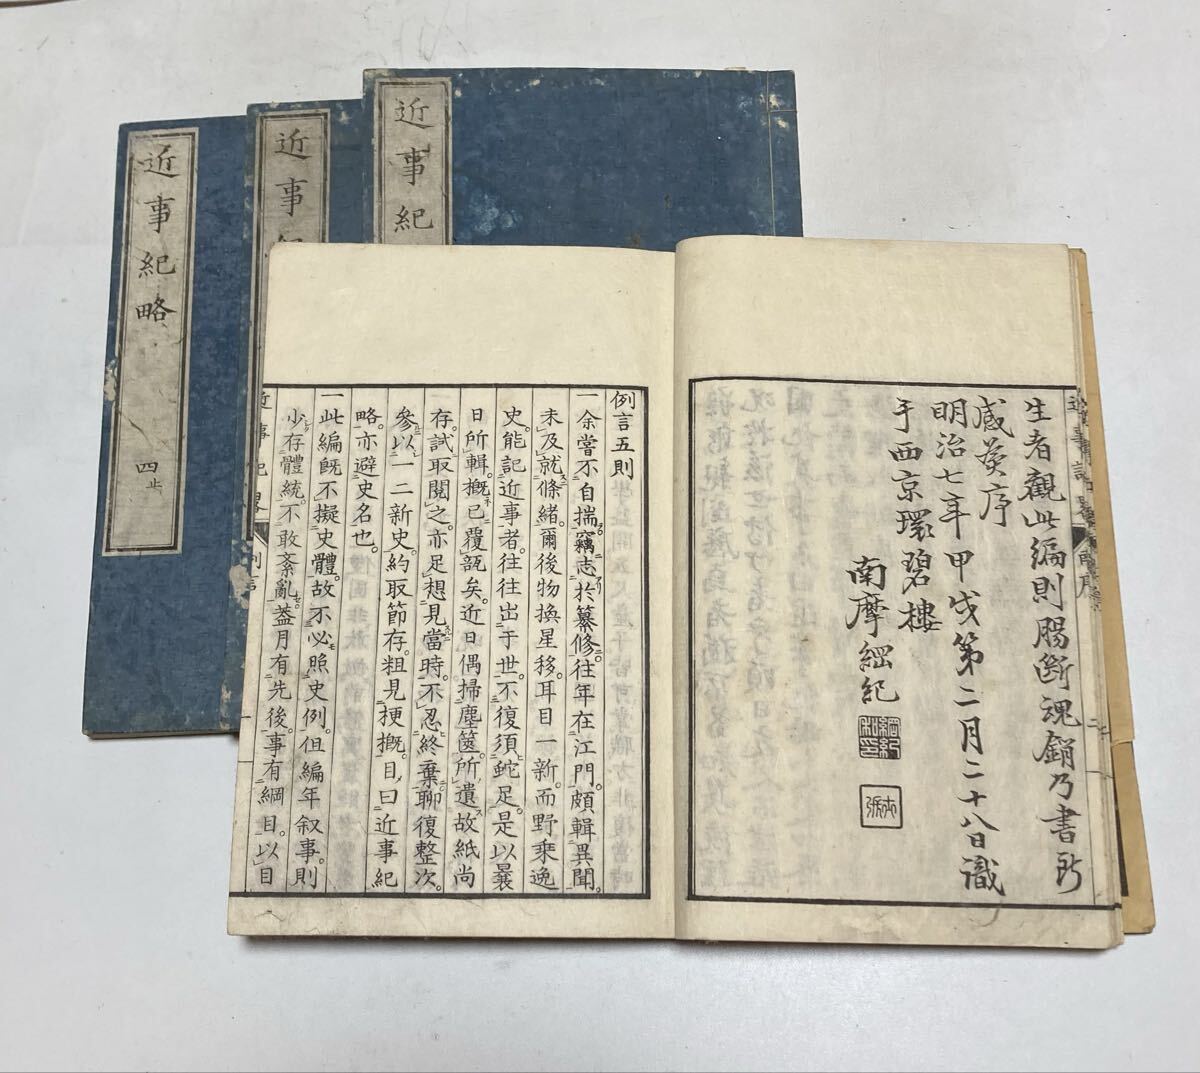 近事紀略
四止
近事紀
近事紀
生者觀此編則腸断魂銷乃書所
感為序
明治七年甲戌第二月二十八日識
于西京環碧樓
南摩綱紀
例言五則
一余嘗不自揣竊志於纂修往年在江門頗輯異聞
未及就條緒爾後物換星移耳目一新而野乗逸
史能記近事者往往出于世不復須蛇足是以曩
日所輯概已覆瓿矣近日偶掃塵篋所遺故紙尚
存試取閲之亦足想見當時不忍終棄聊復整次
參以一二新史約取節存粗見梗概目曰近事紀
略亦避史名也
一此編既不擬史體故不必照史例但編年叙事則
少存體統不敢紊亂蓋月有先後事有綱目以目
近事紀略